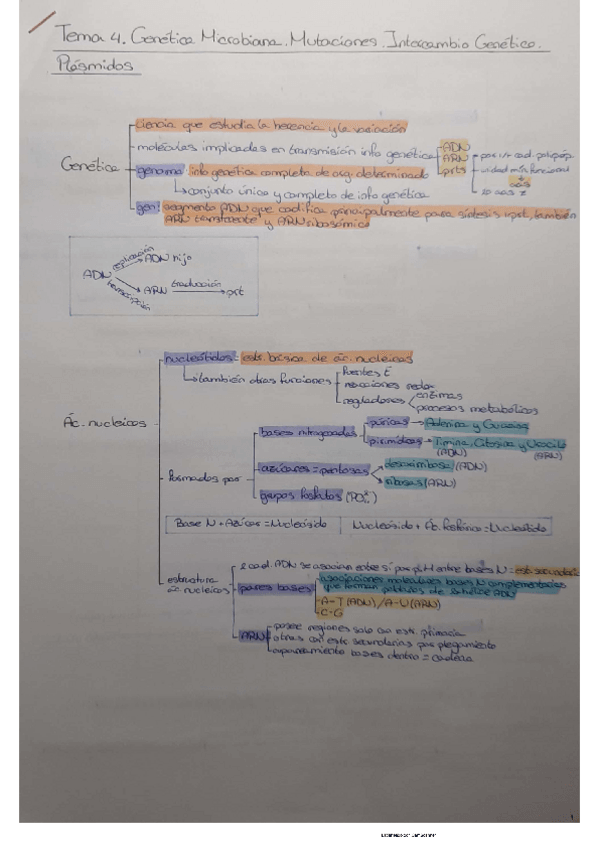 Tema 4. Genética Microbiana. Mutaciones. Intercambio Genético.
Plásmidos
Genética
ciencia que estudia la herencia y la variación
moléculas implicadas en transmisión info genética
ADN
ARN
prts
por 1/+ cad. polipép.
unidad mín. funcional
aas
20 aas ≠
genoma: info genética completa de org. determinado
conjunto único y completo de info genética
gen: segmento ADN que codifica principalmente para síntesis prt, también
ARN transferente y ARN ribosómico
ADN
replicación
ADN hijo
transcripción
ARN
traducción
prt
Ác. nucleicos
nucleótidos = estr. básica de ác. nucleicos
también otras funciones
fuentes E
reacciones redox
reguladores
enzimas
procesos metabólicos
formados por
bases nitrogenadas
púricas → Adenina y Guanina
pirimídicas → Timina, Citosina y Uracilo
(ADN)
(ARN)
azúcares = pentosas
desoxirribosa (ADN)
ribosa (ARN)
grupos fosfatos
Base N + Azúcar = Nucleósido
Nucleósido + Ác. fosfórico = Nucleótido
estructura
ác. nucleicos
2 cad. ADN se asocian entre sí por pH entre bases N = estr. secundaria
pares bases
asociaciones moleculares bases N complementarias
que forman peldaños de hélice ADN
A-T (ADN) / A-U (ARN)
C-G
ARN
posee regiones solo con estr. primaria
otras con estr. secundarias por plegamiento
apareamiento bases dentro = cadena